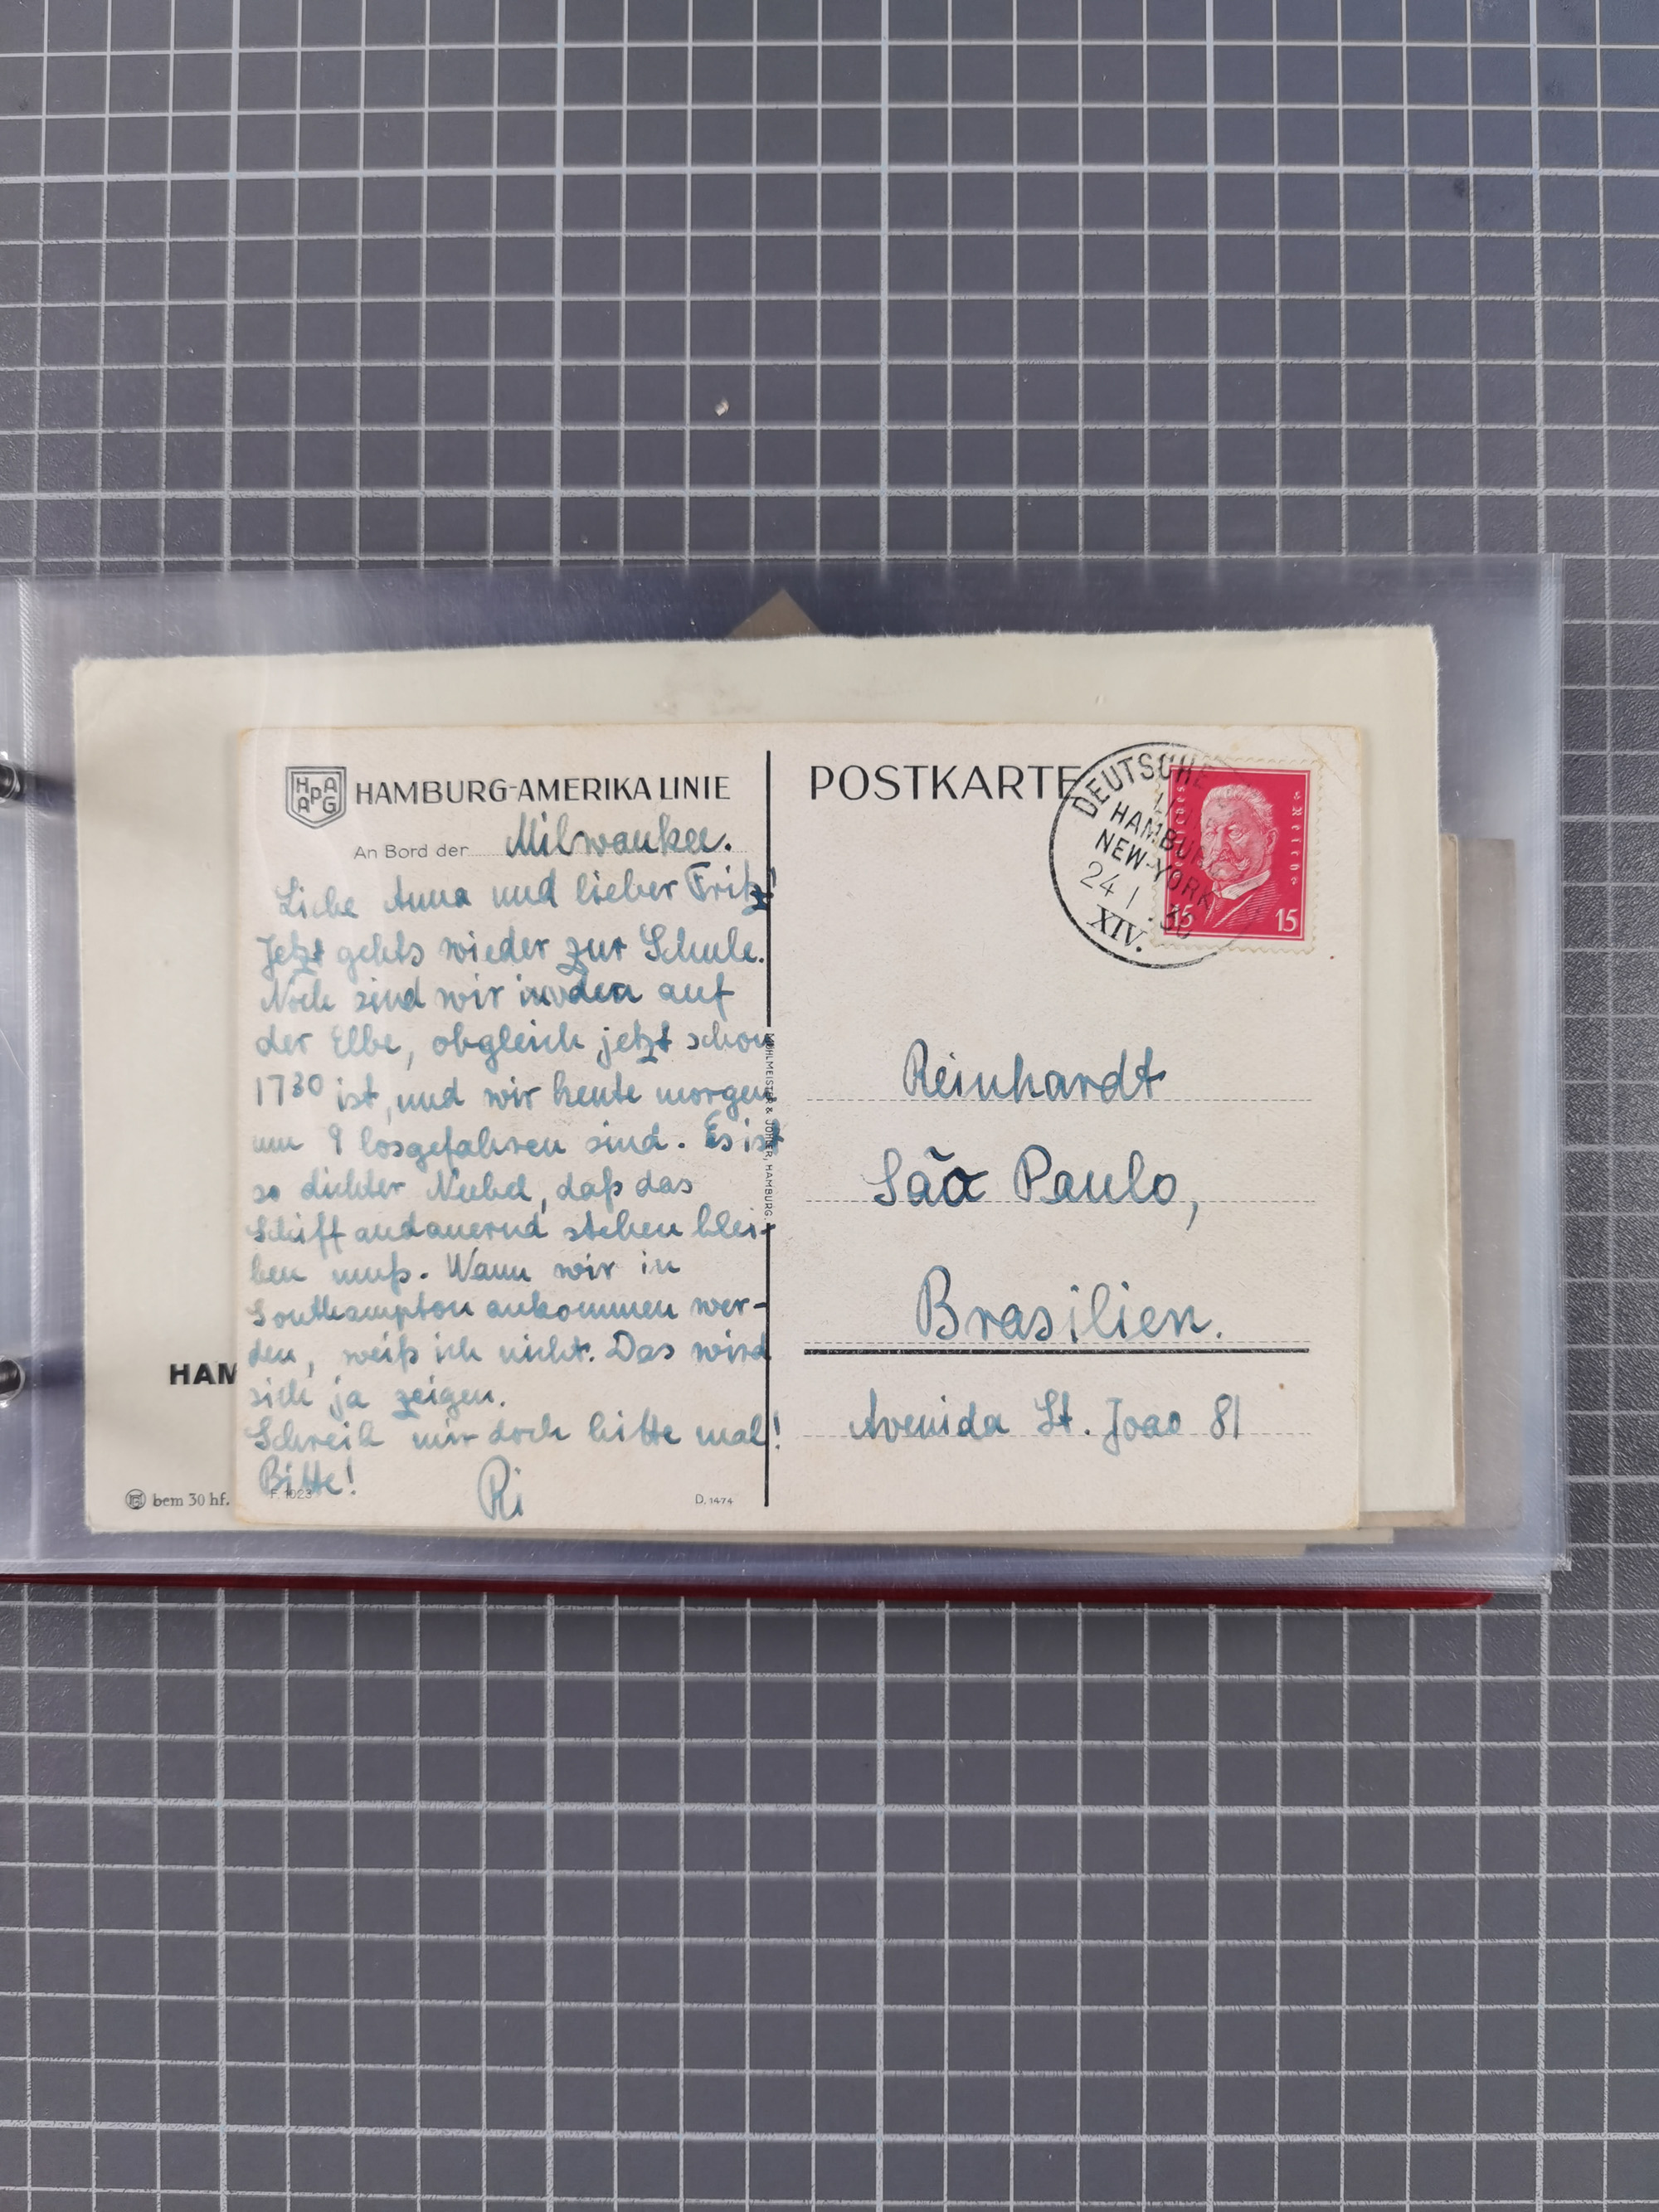 HAPAG HAMBURG-AMERIKA LINIE
An Bord der Milwaukee.
Liebe Anna und lieber Fritz!
Jetzt gehts wieder zur Schule.
Noch sind wir auf
der Elbe, obgleich jetzt schon
17³⁰ ist, und wir heute morgen
um 9 losgefahren sind. Es ist
so dichter Nebel, daß das
Schiff andauernd stehen blei-
ben muß. Wann wir in
Southampton ankommen wer-
den, weiß ich nicht. Das wird
sich ja zeigen.
Schreib mir doch bitte mal!
Bitte! Ri
F. 1023
D. 1474
MÜHLMEISTER & JOHLER, HAMBURG.
POSTKARTE
DEUTSCHE
HAMBURG
NEW-YORK
24 1 30
XIV.
Reich
15 15
Reinhardt
São Paulo,
Brasilien.
Avenida St. Joao 81
HAM
bem 30 hf.